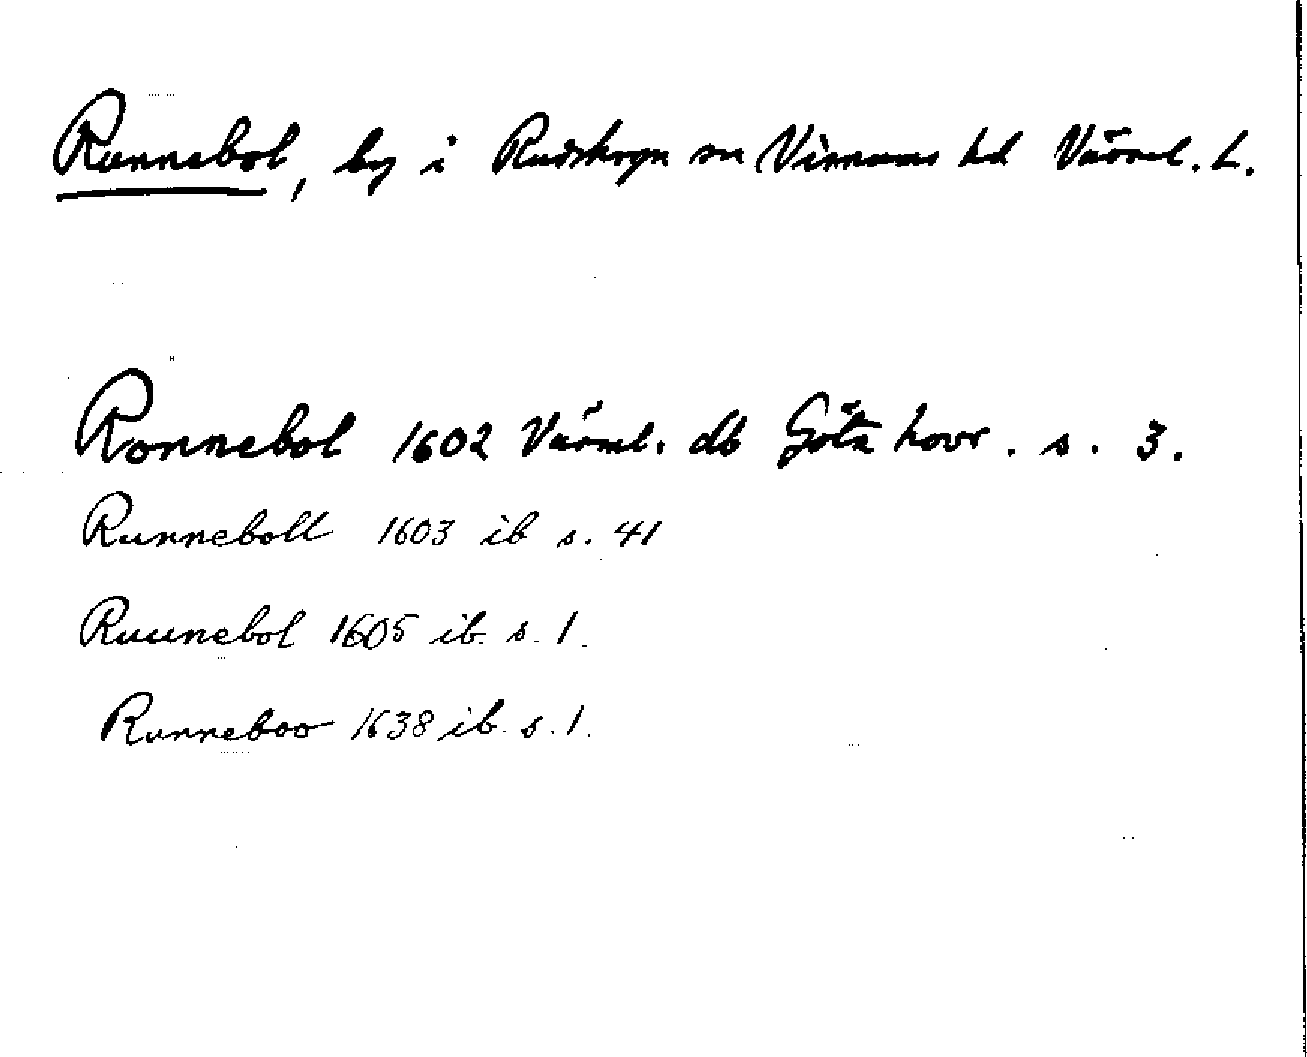 Runnebol, by i Rudskoga sn Visnums hd Värml. L.
Ronnebol 1602 Värml. db Göta hovr. s. 3.
Runneboll 1603 ib s. 41
Ruunebol 1605 ib. s. 1.
Runneboo 1638 ib. s. 1.